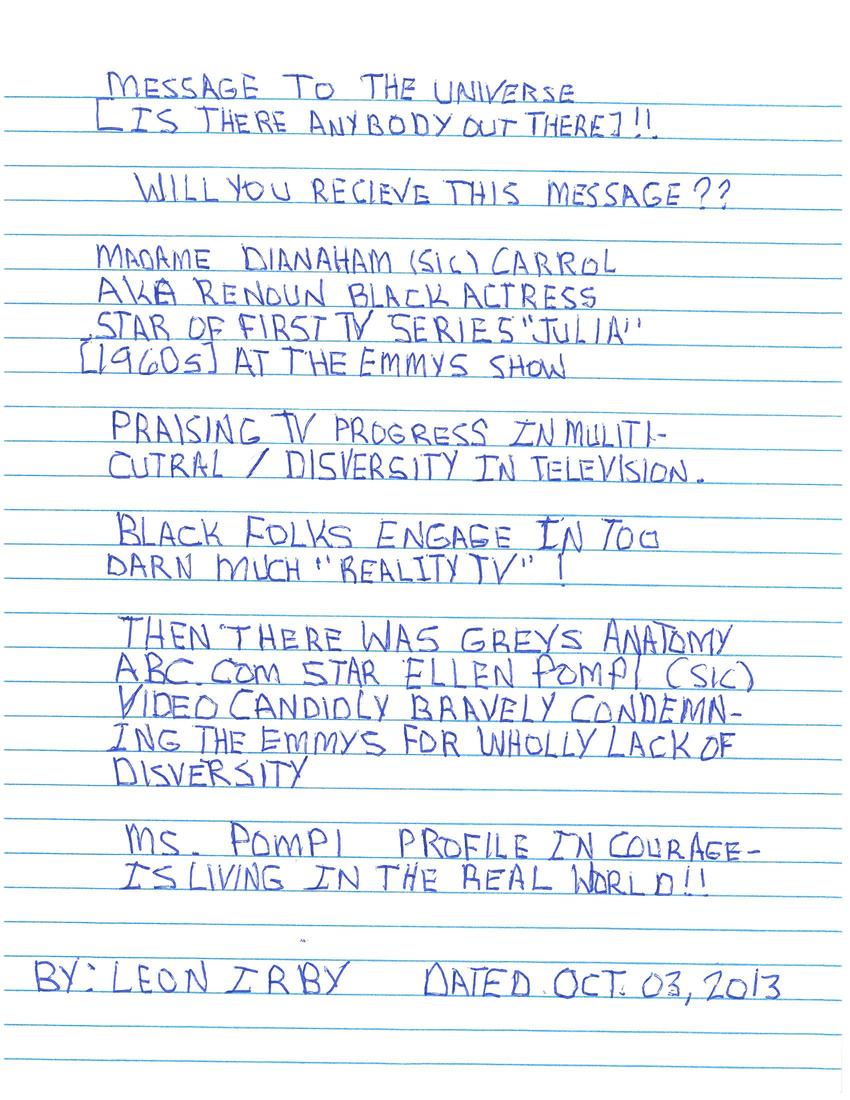 MESSAGE TO THE UNIVERSE
[IS THERE ANYBODY OUT THERE]!!
WILL YOU RECIEVE THIS MESSAGE??
MADAME DIANAHAM (SIC) CARROL
AKA RENOUN BLACK ACTRESS
STAR OF FIRST TV SERIES "JULIA"
[1960s] AT THE EMMYS SHOW
PRAISING TV PROGRESS IN MULITI-
CUTRAL / DISVERSITY IN TELEVISION.
BLACK FOLKS ENGAGE IN TOO
DARN MUCH "REALITY TV" !
THEN THERE WAS GREYS ANATOMY
ABC.COM STAR ELLEN POMPI (SIC)
VIDEO CANDIDLY BRAVELY CONDEMN-
ING THE EMMYS FOR WHOLLY LACK OF
DISVERSITY
MS. POMPI PROFILE IN COURAGE-
IS LIVING IN THE REAL WORLD!!
BY: LEON IRBY DATED OCT. 03, 2013